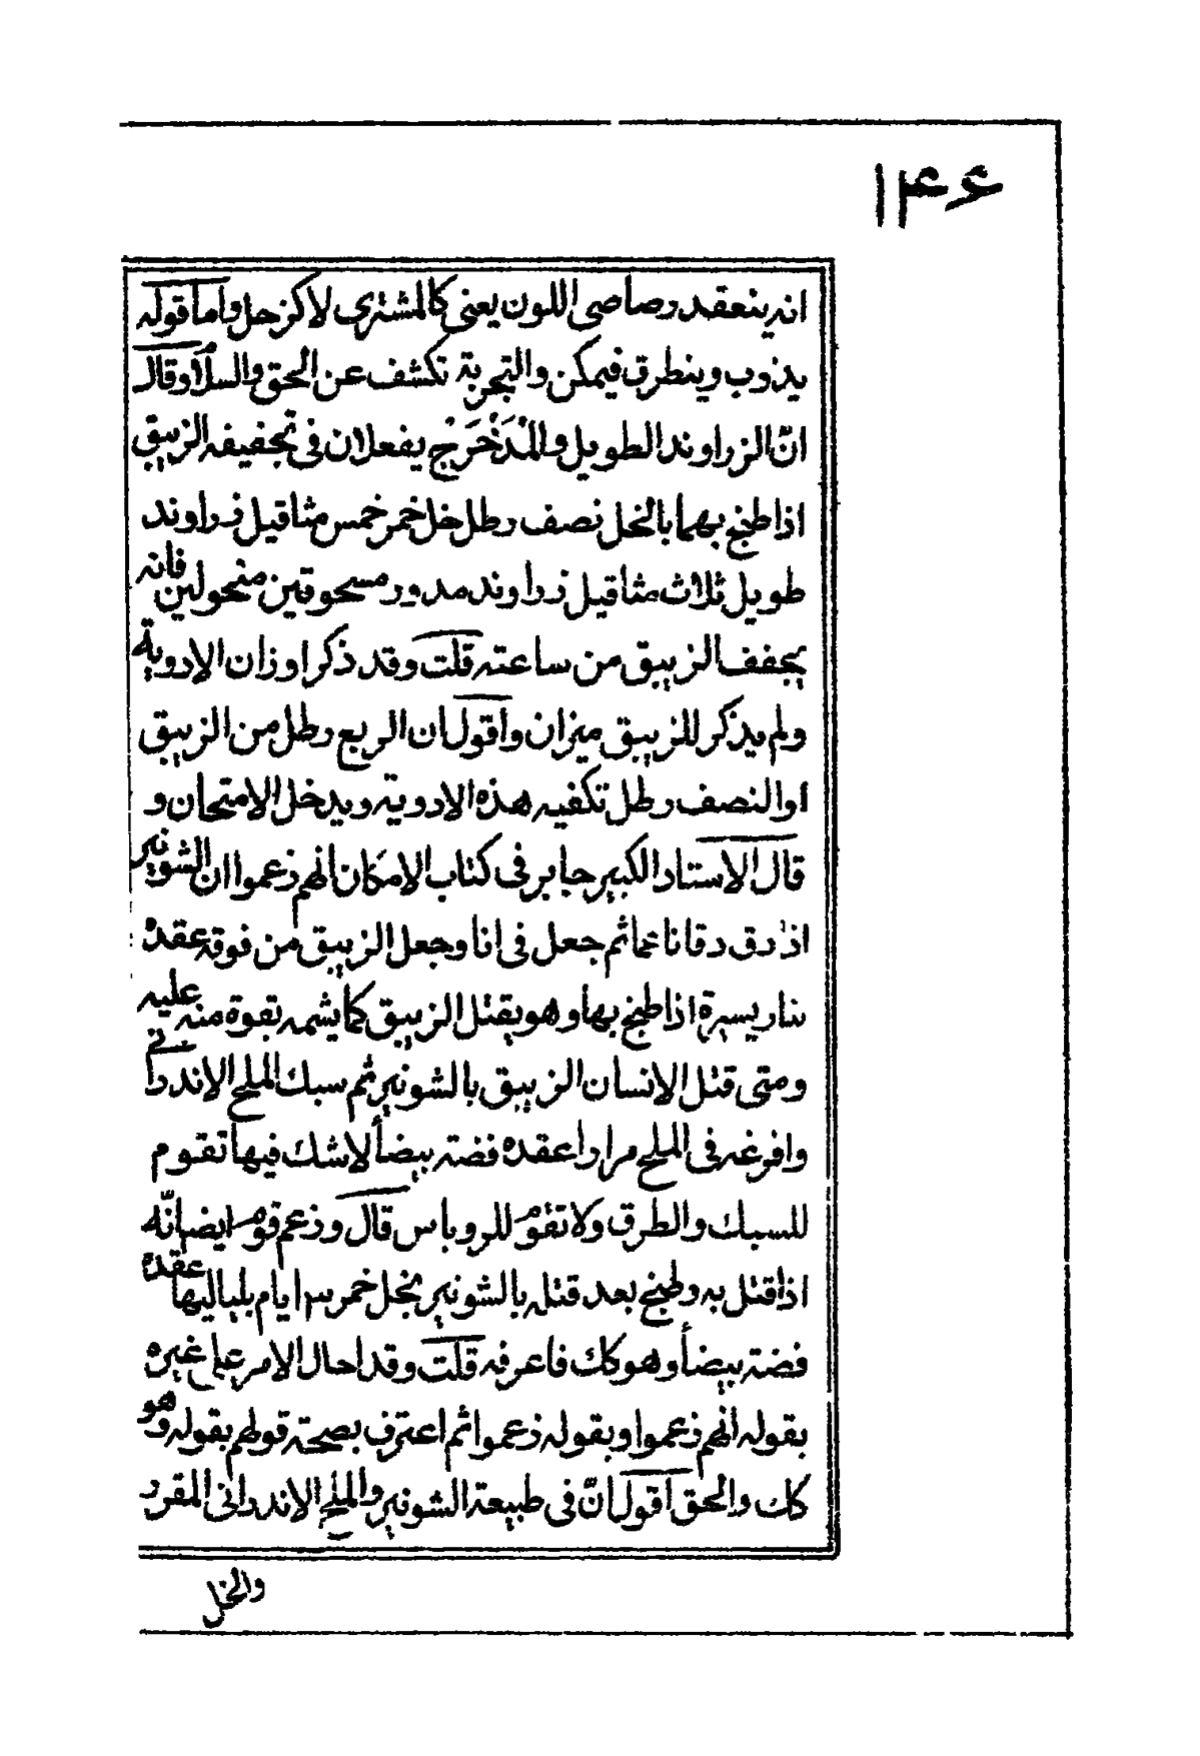 ۱۴۶
انه ينعقد رصاصى اللون يعنى كالمشترى لا كزحل واما قوله
يذوب وينطرق فيمكن والتجربة تكشف عن الحق والسلام وقال
انّ الزراوند الطويل والمْدَحْرَجْ يفعلان فى تجفيفه الزيبق
اذا طبخ بهما بالخل نصف رطل خل خمر خمس مثاقيل زراوند
طويل ثلاث مثاقيل زراوند مدور مسحوقين منخولين فانه
يجفف الزيبق من ساعته قلت وقد ذكر اوزان الادوية
ولم يذكر للزيبق ميزان واقول ان الربع رطل من الزيبق
اوالنصف رطل تكفيه هذه الادوية ويدخل الامتحان و
قال الاستاد الكبير جابر فى كتاب الامكان انهم زعموا ان الشونيز
اذا دق دقا ناعما ثم جعل فى انا وجعل الزيبق من فوقه عقده
بنار يسيرة اذا طبخ بها وهو يقتل الزيبق كما يشمه بقوة منه عليه
ومتى قتل الانسان الزيبق بالشونيز ثم سبك الملح الاندرانى
وافرغه فى الملح مرارا عقده فضة بيضأ لاشك فيها تقوم
للسبك والطرق ولا تقوم للروباس قال وزعم قوم ايضا انّه
اذا قتل به وطبخ بعد قتله بالشونيز بخل خمر ٣ ايام بلياليها عقده
فضة بيضأ وهو كك فاعرفه قلت وقد احال الامر على غيره
بقوله انهم زعموا وبقوله زعموا ثم اعترف بصحة قولهم بقوله وهو
كك والحق اقول انّ فى طبيعة الشونيز والملح الاندرانى المقرر
والخل